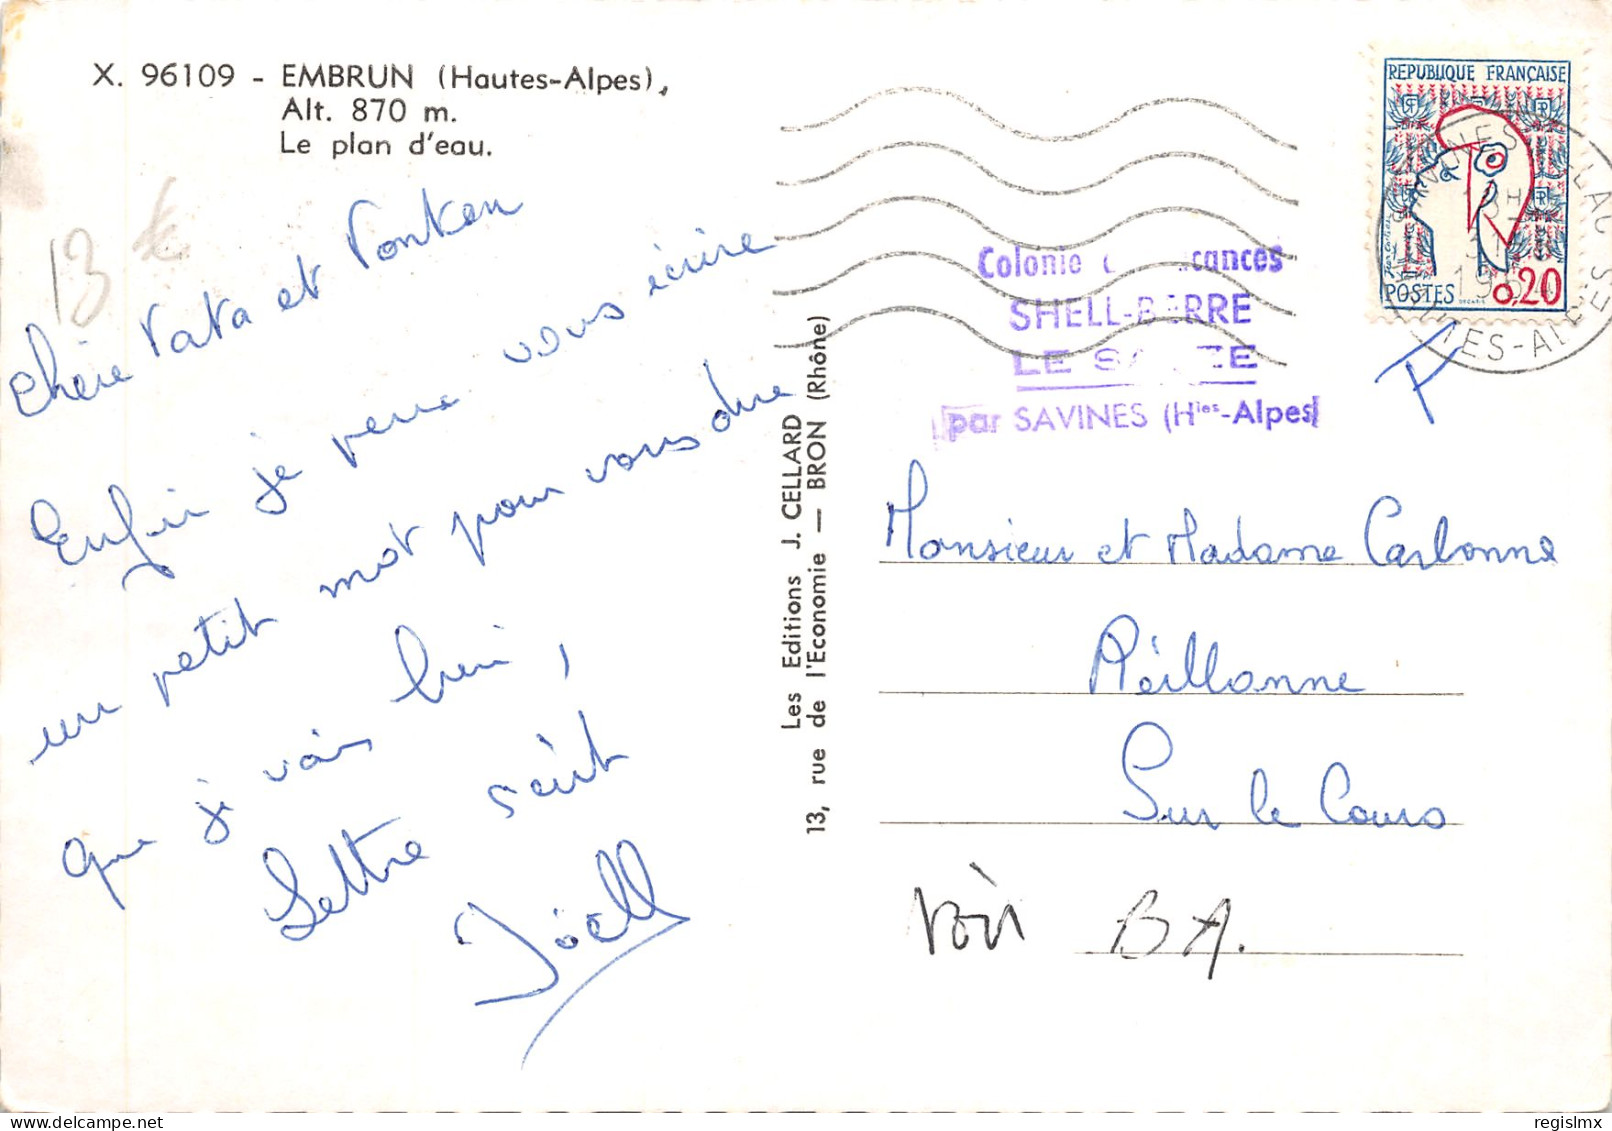 X. 96109 - EMBRUN (Hautes-Alpes),
Alt. 870 m.
Le plan d'eau.
13 €
Chère Tata et Tonton
Enfin je peux vous écrire
un petit mot pour vous dire
que je vais bien,
Lettre suit
Joëll
Les Editions J. CELLARD
13, rue de l'Economie — BRON (Rhône)
REPUBLIQUE FRANÇAISE
POSTES 0,20
Colonie cances
SHELL-BERRE
LE S
par SAVINES (Htes-Alpes)
F
Monsieur et Madame Carbonne
Réillanne
Sur le Cours
Voir BA.
regislmx